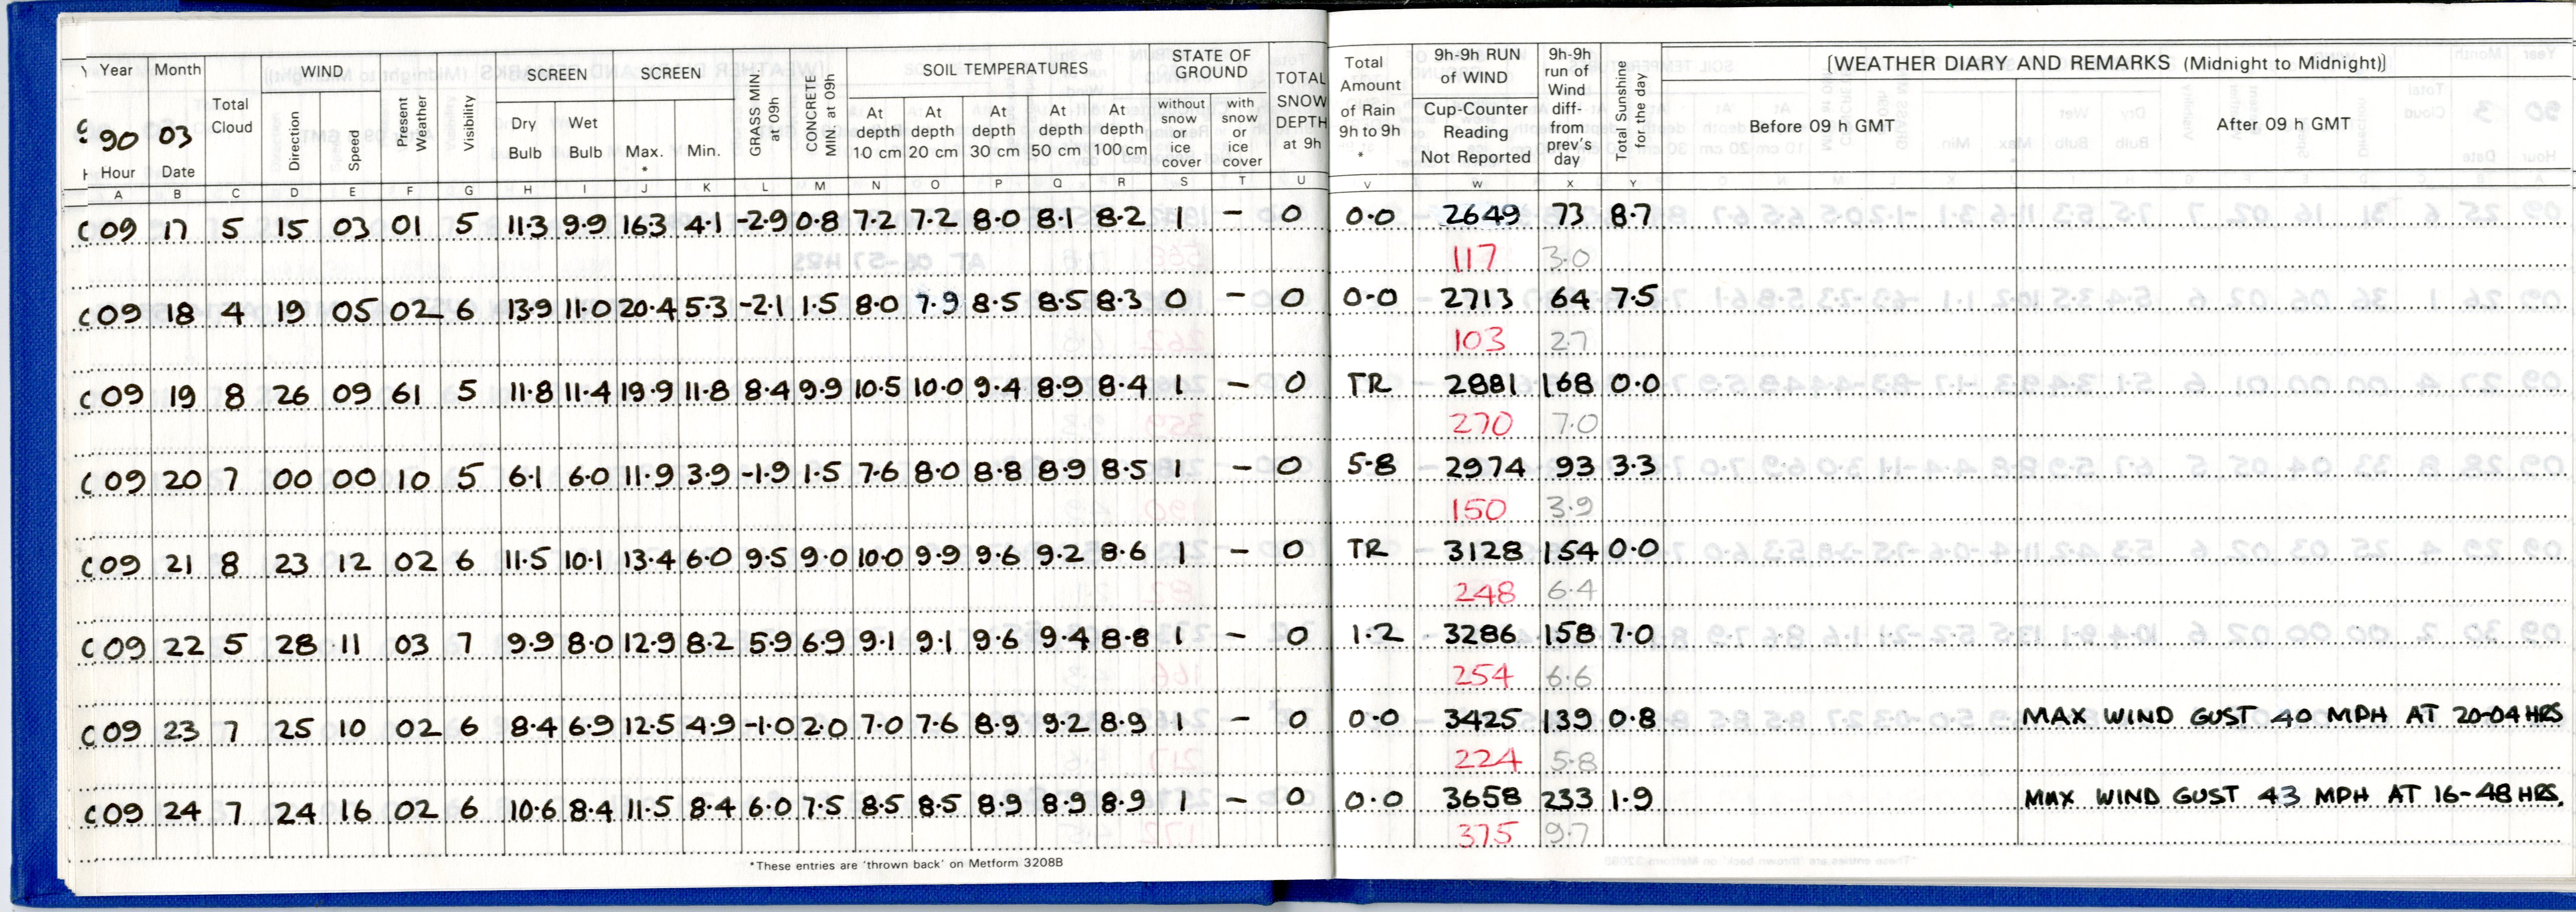 Year Month Total Cloud WIND Present Weather Visibility SCREEN SCREEN GRASS MIN. at 09h CONCRETE MIN. at 09h SOIL TEMPERATURES STATE OF GROUND TOTAL SNOW DEPTH at 9h Total Amount of Rain 9h to 9h * 9h-9h RUN of WIND 9h-9h run of Wind diff- from prev's day Total Sunshine for the day [WEATHER DIARY AND REMARKS (Midnight to Midnight)]
90 03 Direction Speed Dry Bulb Wet Bulb Max. * Min. At depth 10 cm At depth 20 cm At depth 30 cm At depth 50 cm At depth 100 cm without snow or ice cover with snow or ice cover Cup-Counter Reading Not Reported Before 09 h GMT After 09 h GMT
Hour Date
A B C D E F G H I J K L M N O P Q R S T U V W X Y
09 17 5 15 03 01 5 11.3 9.9 163 4.1 -2.9 0.8 7.2 7.2 8.0 8.1 8.2 1 – 0 0.0 2649 73 8.7
117 3.0
09 18 4 19 05 02 6 13.9 11.0 20.4 5.3 -2.1 1.5 8.0 7.9 8.5 8.5 8.3 0 – 0 0.0 2713 64 7.5
103 2.7
09 19 8 26 09 61 5 11.8 11.4 19.9 11.8 8.4 9.9 10.5 10.0 9.4 8.9 8.4 1 – 0 TR 2881 168 0.0
270 7.0
09 20 7 00 00 10 5 6.1 6.0 11.9 3.9 -1.9 1.5 7.6 8.0 8.8 8.9 8.5 1 – 0 5.8 2974 93 3.3
150 3.9
09 21 8 23 12 02 6 11.5 10.1 13.4 6.0 9.5 9.0 10.0 9.9 9.6 9.2 8.6 1 – 0 TR 3128 154 0.0
248 6.4
09 22 5 28 11 03 7 9.9 8.0 12.9 8.2 5.9 6.9 9.1 9.1 9.6 9.4 8.8 1 – 0 1.2 3286 158 7.0
254 6.6
09 23 7 25 10 02 6 8.4 6.9 12.5 4.9 -1.0 2.0 7.0 7.6 8.9 9.2 8.9 1 – 0 0.0 3425 139 0.8 MAX WIND GUST 40 MPH AT 20-04 HRS
224 5.8
09 24 7 24 16 02 6 10.6 8.4 11.5 8.4 6.0 7.5 8.5 8.5 8.9 8.9 8.9 1 – 0 0.0 3658 233 1.9 MAX WIND GUST 43 MPH AT 16-48 HRS.
375 9.7
*These entries are 'thrown back' on Metform 3208B